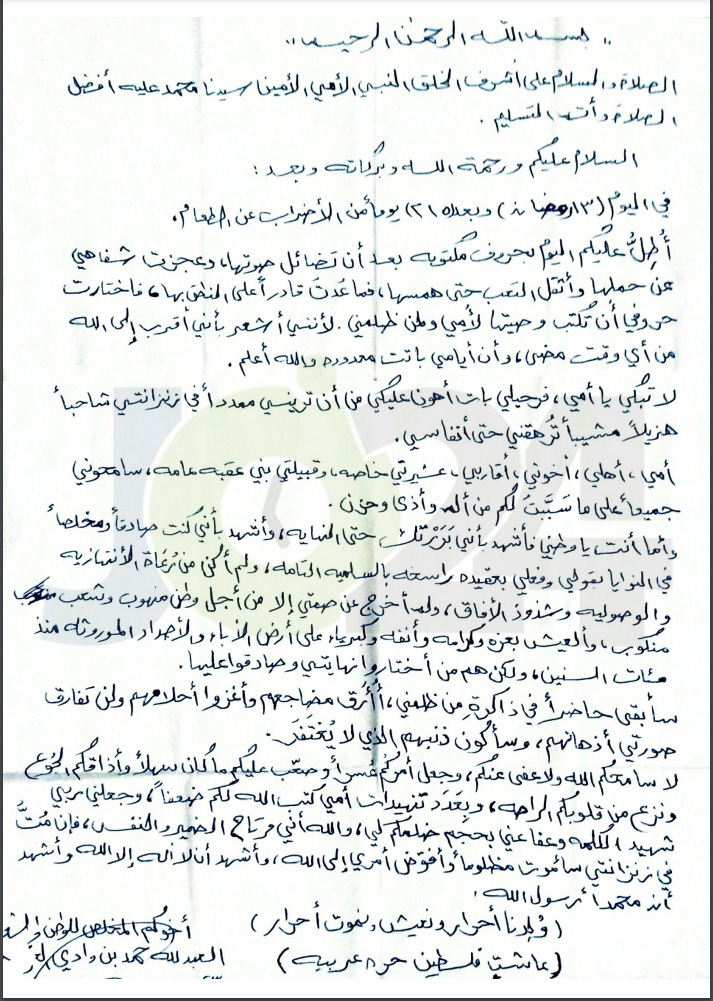 ،، بسم الله الرحمن الرحيم ،،
الصلاة والسلام على أشرف الخلق النبي الأمي الأمين سيدنا محمد عليه أفضل
الصلاة وأتم التسليم .
السلام عليكم ورحمة الله وبركاته وبعد :
في اليوم (١٣ رمضان) وبعد ٢١ يوماً من الأضراب عن الطعام .
أُطِلُّ عليكم اليوم بحروف مكتوبه بعد أن تضائل صوتها، وعجزت شفاهي
عن حملها وأثقل التعب حتى همسها، فما عُدتُ قادراً على النطق بها، فاختارت
حروفي أن تُكتب وصيتها لأمي ولمن ظلمني . لأنني أشعر بأنني أقرب إلى الله
من أي وقت مضى، وأن أيامي باتت معدوده والله أعلم .
لا تبكي يا أمي، فرحيلي بات أهون عليكي من أن ترينني ممدداً في زنزانتي شاحباً
هزيلاً مشيباً تُرهقني حتى أنفاسي .
أمي، أهلي، أخوتي، أقاربي، عشيرتي خاصه، وقبيلتي بني عقبه عامه، سامحوني
جميعاً على ما سَبَّبتَ لكم من ألم وأذى وحزن .
وأما أنت يا وطني فأشهد بأنني بَرَرْتُكَ حتى النهايه، وأشهد بأني كنت صادقاً ومخلصاً
في النوايا بقولي وفعلي بعقيده راسخه بالسلميه التامه، ولم أكن من دُعاة الأنتهازيه
والوصوليه وشذوذ الأفاق، ولم أخرج عن صمتي إلا من أجل وطن منهوب وشعب
منكوب، وألعيش بعزه وكرامه وأنفه وكبرياء على أرض الأباء والأجداد الموروثه منذ
مئات السنين، ولكن هم من أختاروا نهايتي وصادقوا عليها .
سأبقى حاضراً في ذاكرةِ مِن ظلمني، أُؤَرق مضاجعهم وأغزوا أحلامهم ولن تفارق
صورتي أذهانهم، وسأكون ذنبهم الذي لا يُغتفَر .
لا سامحكم الله ولا عفى عنكم، وجعل أمركم عُسراً وصعّب عليكم ما كان سهلاً وأذاقكم الجوع
ونزع من قلوبكم الراحه، وبِعَدد تنهيدات أمي كتب الله لكم ضعفاً، وجعلني ربي
شهيد الكلمه وعفا عني بحجم ظلمكم لي، والله أني مرتاح الضمير والنفس، فإن مُتُّ
في زنزانتي سأموت مظلوماً وأفوّض أمري إلى الله، وأشهد أن لا إله إلا الله وأشهد
أن محمداً رسول الله .
(وُلِدنا أحرار ونعيش ونموت أحرار) أخوكم المخلص للوطن
(عاشت فلسطين حره عربيه) العبد لله حمد بن وادي